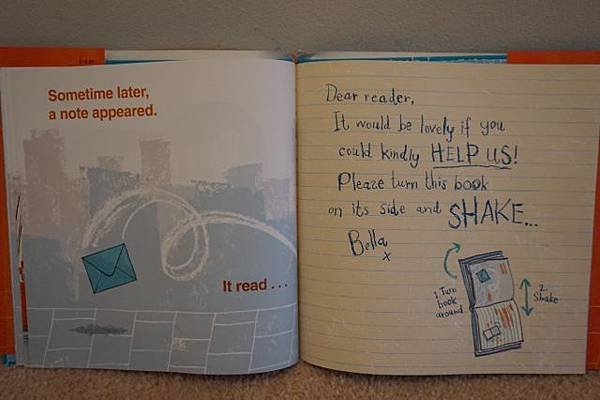 Sometime later,
a note appeared.
It read . . .
Dear reader,
It would be lovely if you
could kindly HELP US!
Please turn this book
on its side and SHAKE...
Bella
x
1. Turn
book
around
2.
Shake